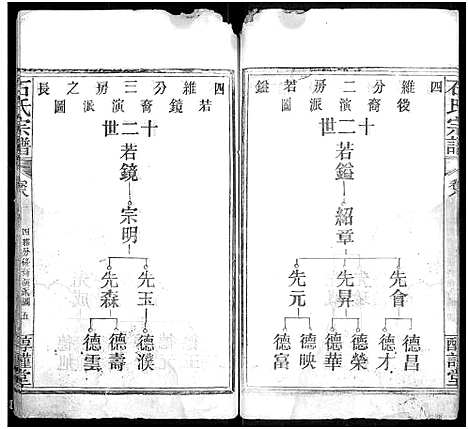 石氏宗譜
四維後分二房若鎰裔演派圖
十二世
若鎰
紹章
先會
先昇
先元
德昌
德才
德榮
德華
德映
德富
四維分三房之長若鏡裔演派圖
十二世
若鏡
宗明
先玉
先森
德濮
德壽
德雲
石氏宗譜
卷八